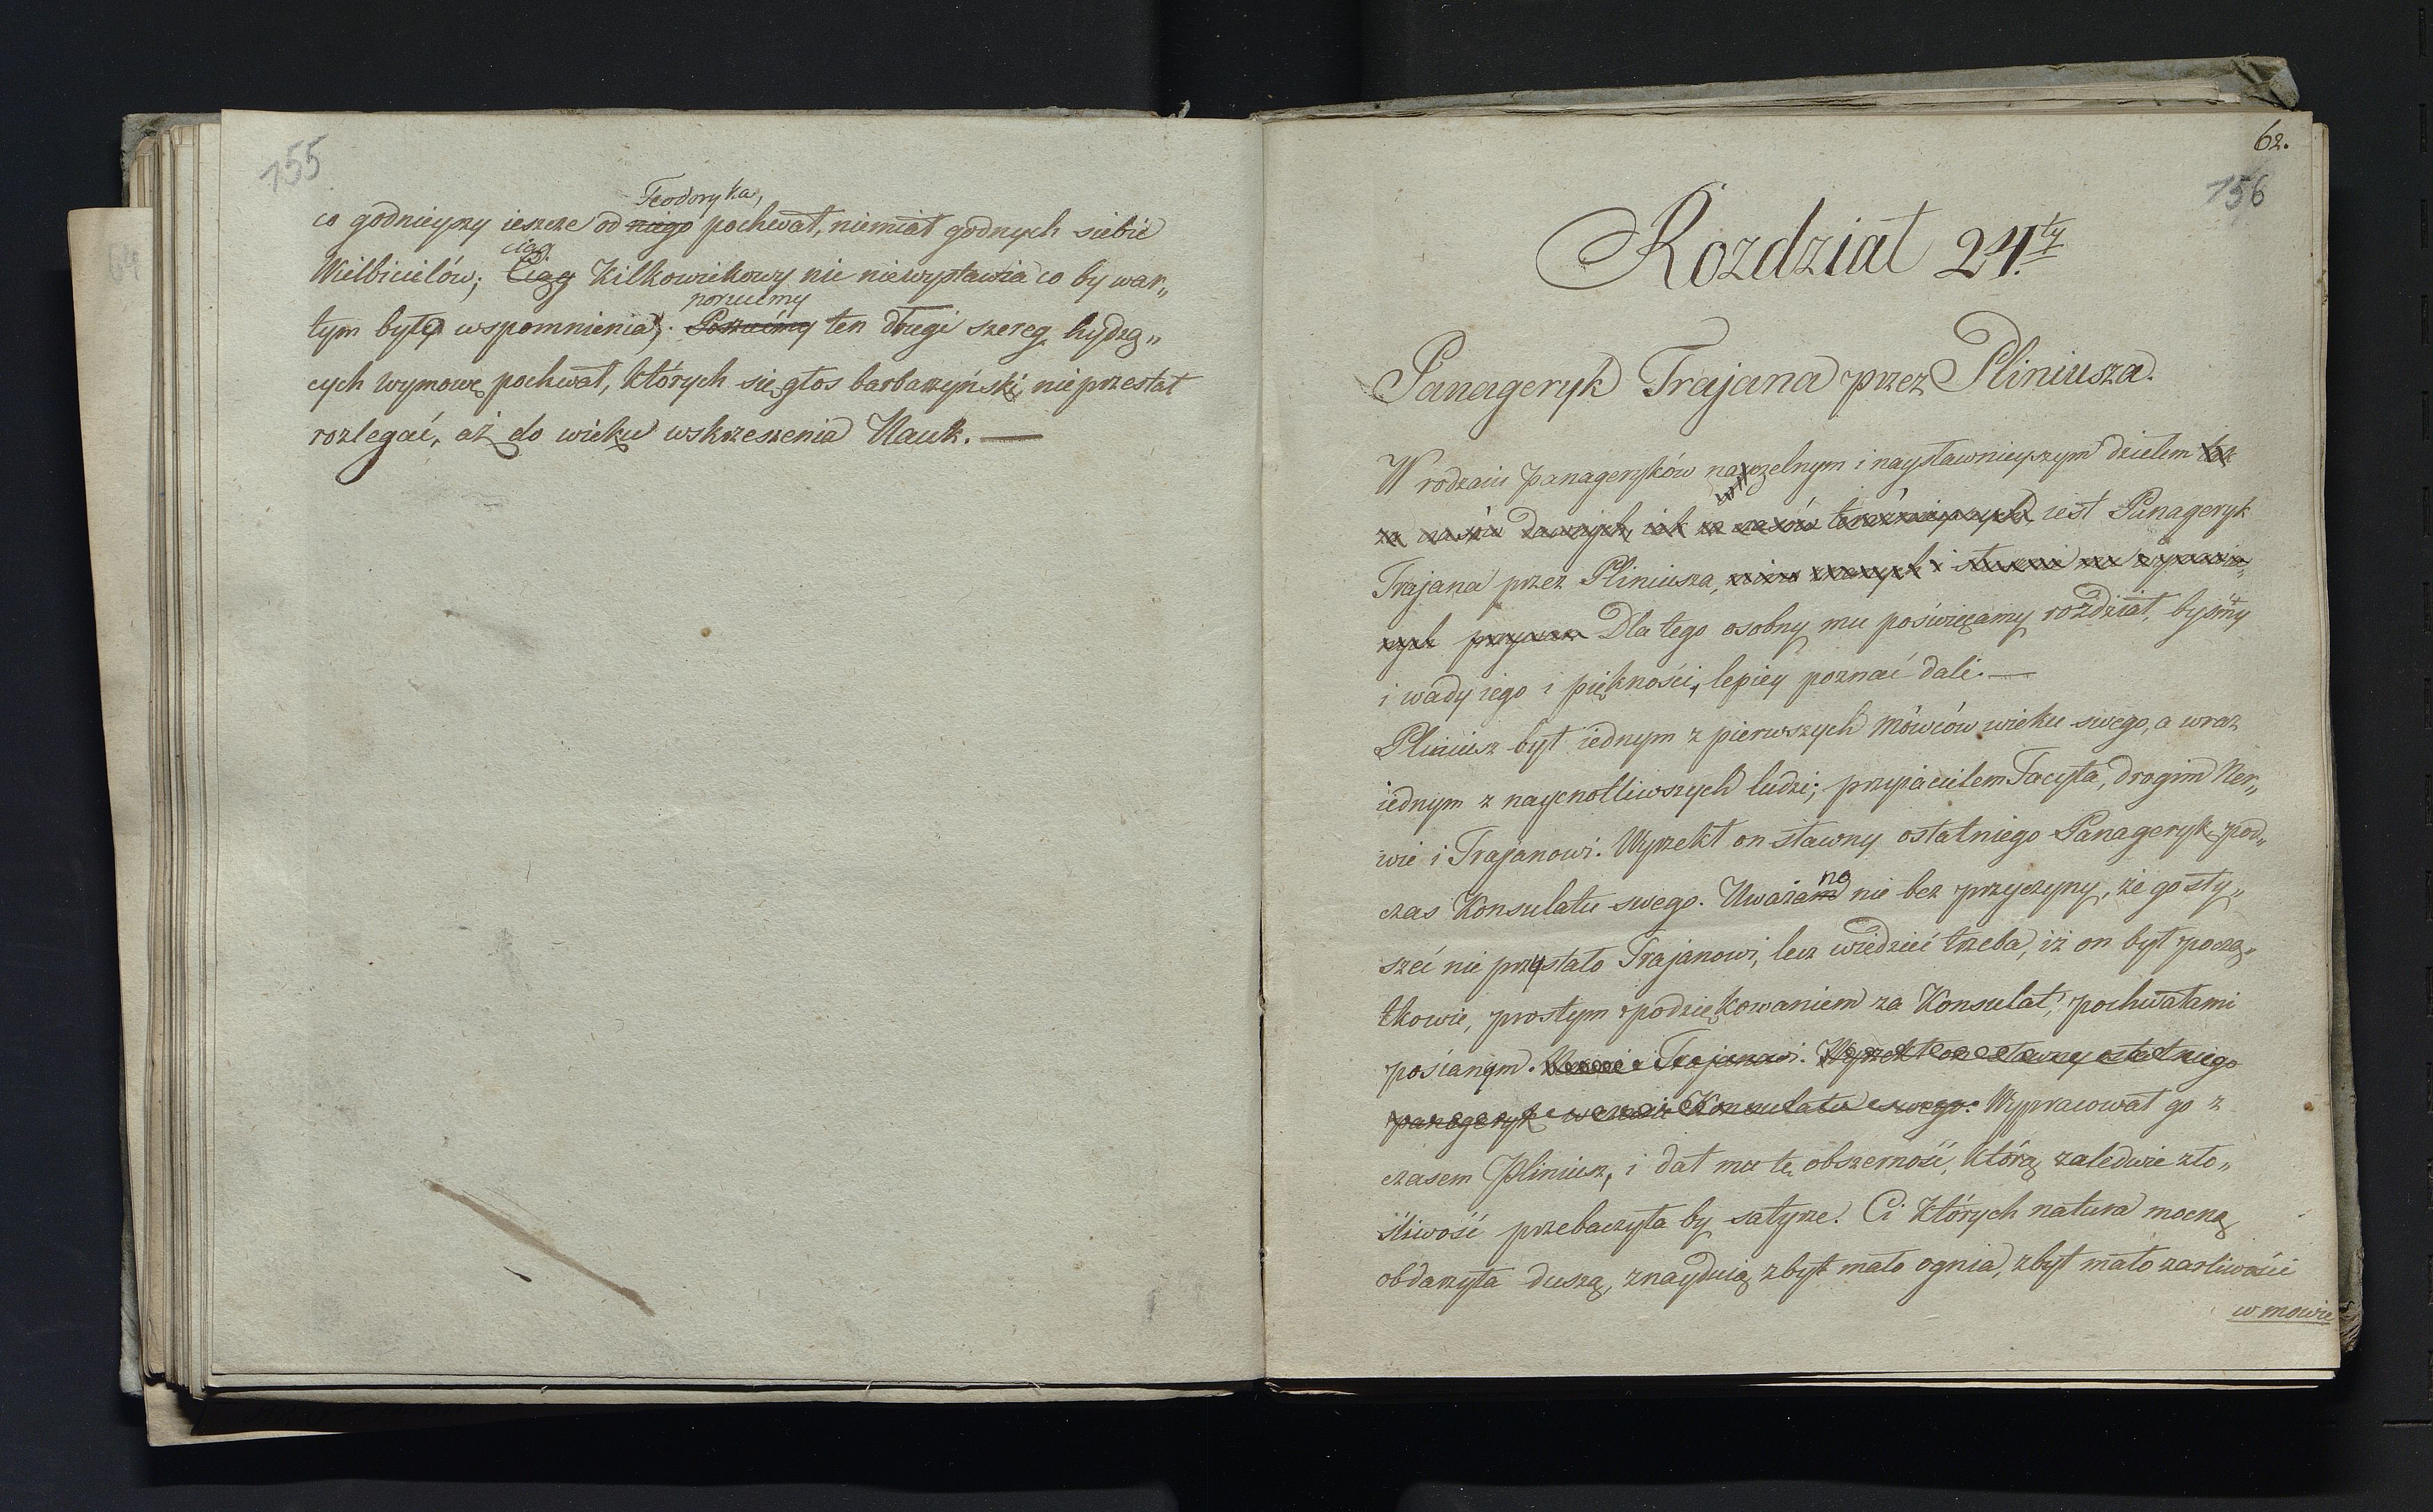 155
Teodoryka,
co godnieyszy ieszcze od niego pochwał, niemiał godnych siebie
ciąg
Wielbicielów; Ciąg Kilkowiekowy nic niewystawia co by war„
porzućmy
tym było wspomnienia; Porzućmy ten długi szereg hydzą„
cych wymowę pochwał, których się głos barbarzyński nieprzestał
rozlegać, aż do wieku wskrzeszenia Nauk. —
62.
156
Rozdział 24.ty
Panageryk Trajana przez Pliniusza.
W rodzaiu panageryków naczelnym i naysławnieyszym dziełem tak
za czasów dawnych, iak za czasów teraźnieyszych, iest Panageryk
Trajana przez Pliniusza, i
Dla tego osobny mu poświęcamy rozdział, byśmy
i wady iego i piękności, lepiey poznać dali. —
Pliniusz był iednym z pierwszych mówców wieku swego, a wraz
iednym z naycnotliwszych ludzi; przyiacielem Tacyta, drogim Ner„
wie i Trajanowi. Wyrzekł on sławny ostatniego Panageryk pod„
czas Konsulatu swego. Uważano nie bez przyczyny, że go sły„
szeć nie przystało Trajanowi, lecz wiedzieć trzeba, iż on był począ„
tkowie, prostym podziękowaniem za Konsulat, pochwałami
posianym. Nerwie i Trajanowi. Wyrzekł on sławny ostatniego
panegeryk w czasie Konsulatu swego. Wypracował go z
czasem Pliniusz, i dał mu tę obszerność, którą zaledwie zło„
śliwość przebaczyła by satyrze. Ci których natura mocną
obdarzyła duszą, znayduią zbyt mało ognia, zbyt mało żarliwości
w mowie